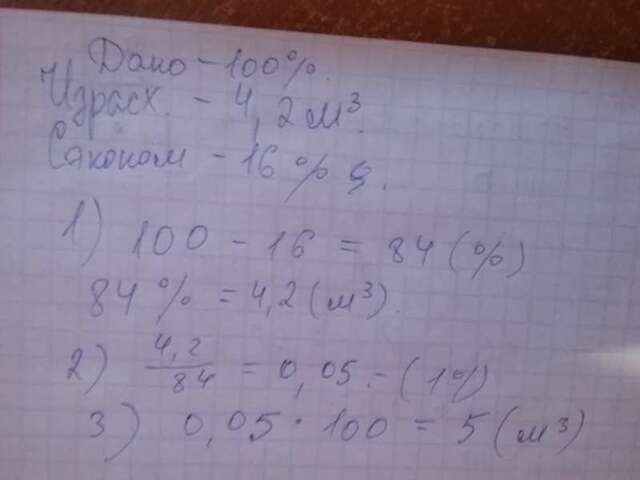 Дано - 100%.
Израсх. - 4,2 м³.
Сэконом - 16%
1) 100 - 16 = 84 (%)
84% = 4,2 (м³).
2) 4,2/84 = 0,05. - (1%)
3) 0,05 · 100 = 5 (м³)